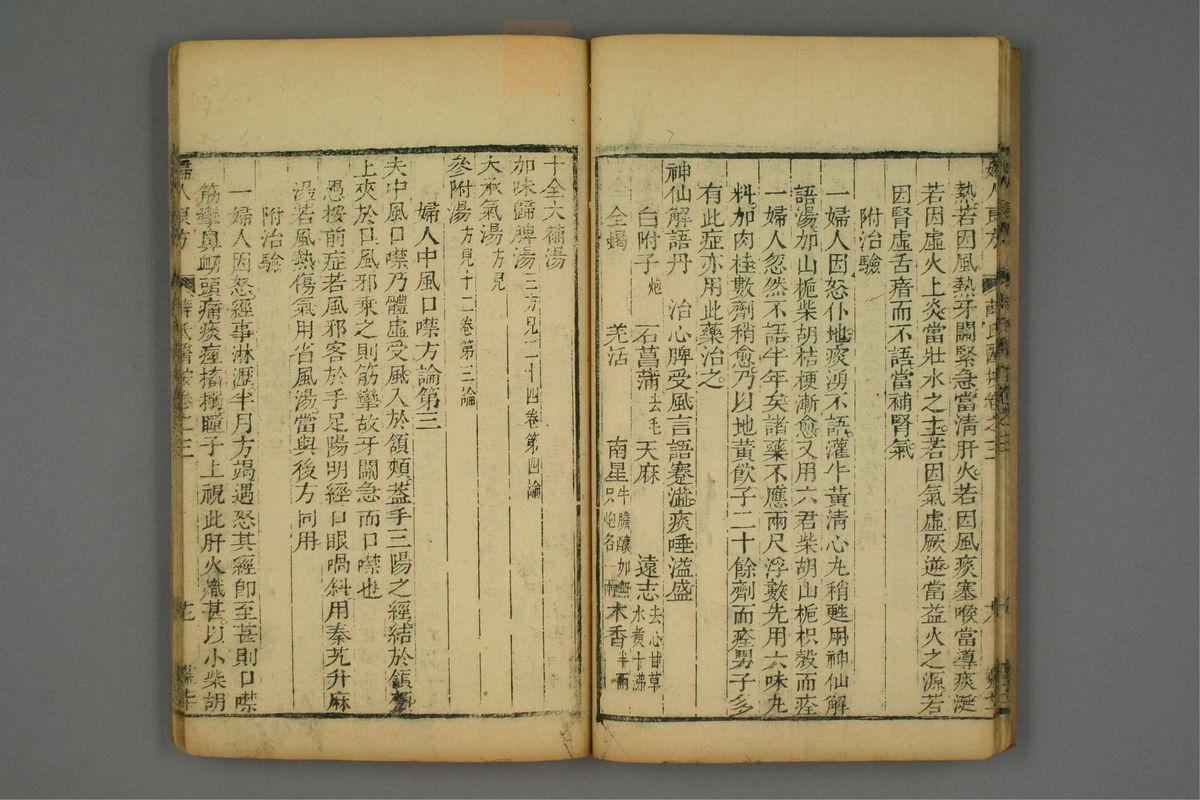 熱若因風熱牙關緊急當清肝火若因風痰塞喉當導痰涎
若因虛火上炎當壯水之主若因氣虛厥逆當益火之源若
因腎虛舌瘖而不語當補腎氣
附治驗
一婦人因怒仆地痰湧不語灌牛黃清心丸稍甦用神仙解
語湯加山梔柴胡桔梗漸愈又用六君柴胡山梔枳殼而痊
一婦人忽然不語半年矣諸藥不應兩尺浮數先用六味丸
料加肉桂數劑稍愈乃以地黃飲子二十餘劑而痊男子多
有此症亦用此藥治之
神仙解語丹 治心脾受風言語蹇澁痰唾溢盛
白附子炮 石菖蒲去毛 天麻 遠志去心甘草水煮十沸
全蝎 羌活 南星牛膽釀如無只炮各一兩 木香半兩
十全大補湯
加味歸脾湯二方見二十四卷第四論
大承氣湯方見
參附湯方見十二卷第三論
婦人中風口噤方論第三
夫中風口噤乃體虛受風入於頷頰葢手三陽之經結於頷頰
上夾於口風邪乘之則筋攣故牙關急而口噤也
愚按前症若風邪客於手足陽明經口眼喎斜用秦艽升麻
湯若風熱傷氣用省風湯當與後方同用
附治驗
一婦人因怒經事淋瀝半月方竭遇怒其經即至甚則口噤
筋攣鼻衂頭痛痰痙搐搦瞳子上視此肝火熾甚以小柴胡
婦人良方
薛氏醫按卷之三
婦人良方
薛氏醫按卷之三